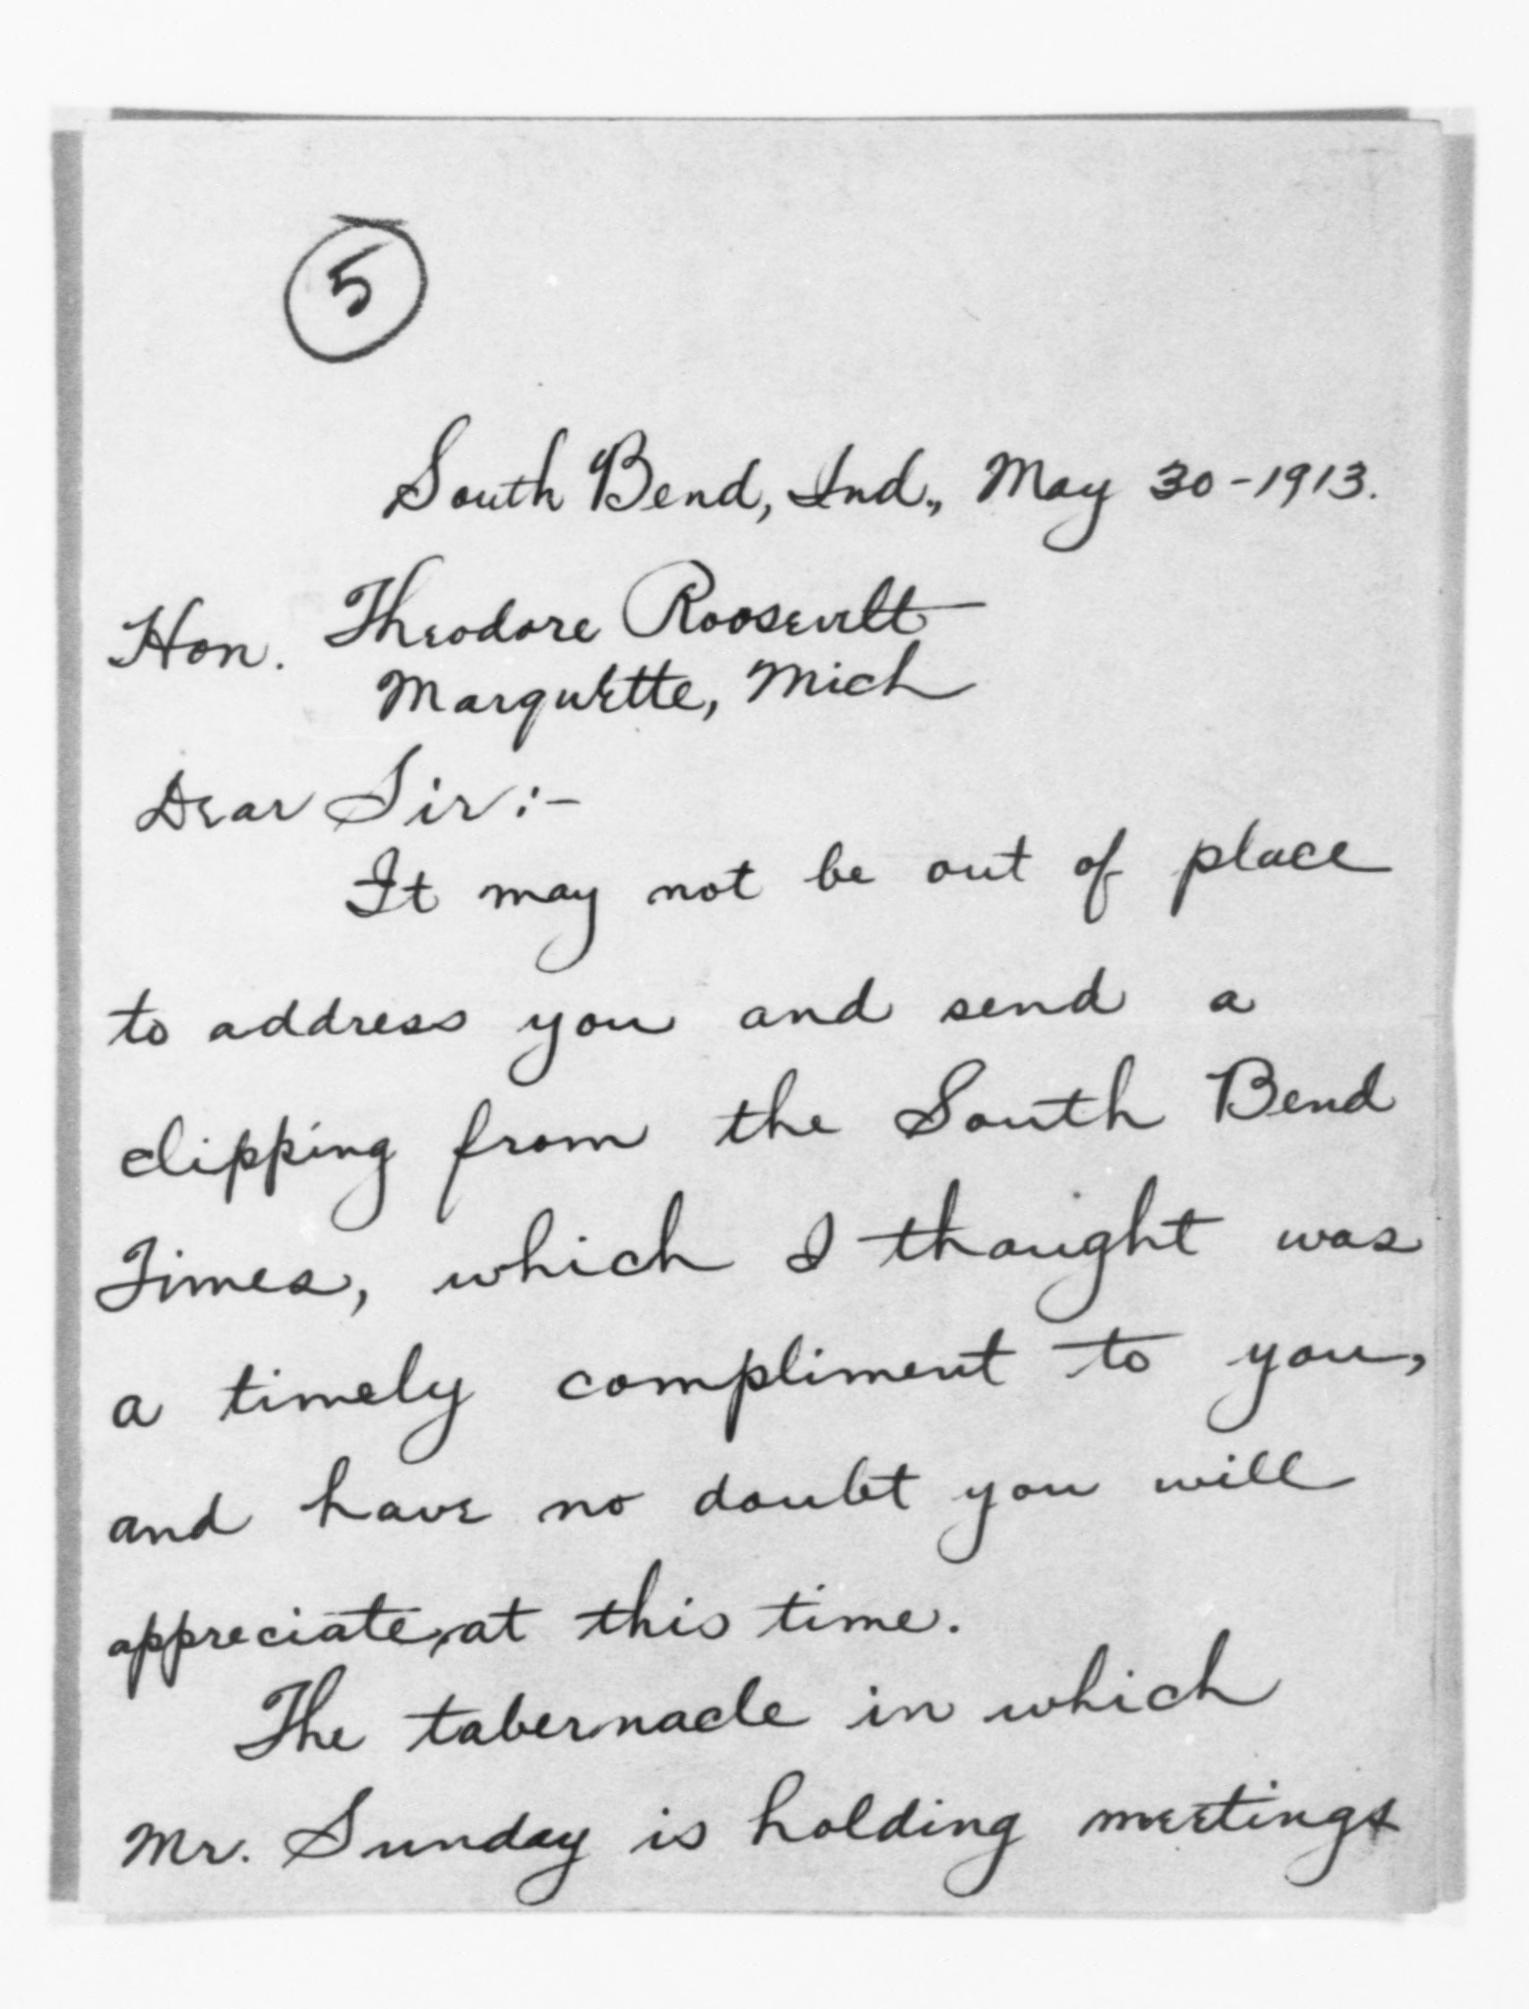 5
South Bend, Ind., May 30-1913.
Hon. Theodore Roosevelt
Marquette, Mich
Dear Sir:-
It may not be out of place
to address you and send a
clipping from the South Bend
Times, which I thought was
a timely compliment to you,
and have no doubt you will
appreciate, at this time.
The tabernacle in which
Mr. Sunday is holding meetings